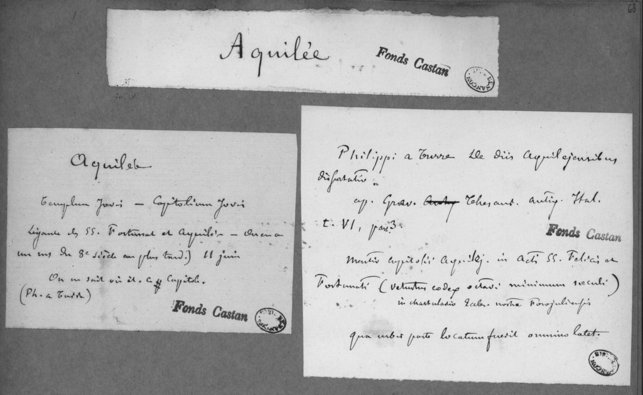 Aquilée
Fonds Castan
Aquilée
Templum Jovis — Capitolium Jovis
Légende des SS. Fortunat et Aquilée — On en a
un ms du 8e siècle au plus tard.) 11 juin
On ne sait où ét. ce Capitole.
(Ph. a Turre)
Fonds Castan
Philippi a Turre De diis Aquilejensibus
ap. Græv. Thesaur. antiq. Ital.
t. VI, pars 3a
Fonds Castan
Mentio capitolii Aquilej. in Actis SS. Felicis et
Fortunati (vetustus codex octavi minimum sæculi)
in chartulario Eccles. nostræ Forojuliensis
qua urbis parte locatum fuerit omnino latet.